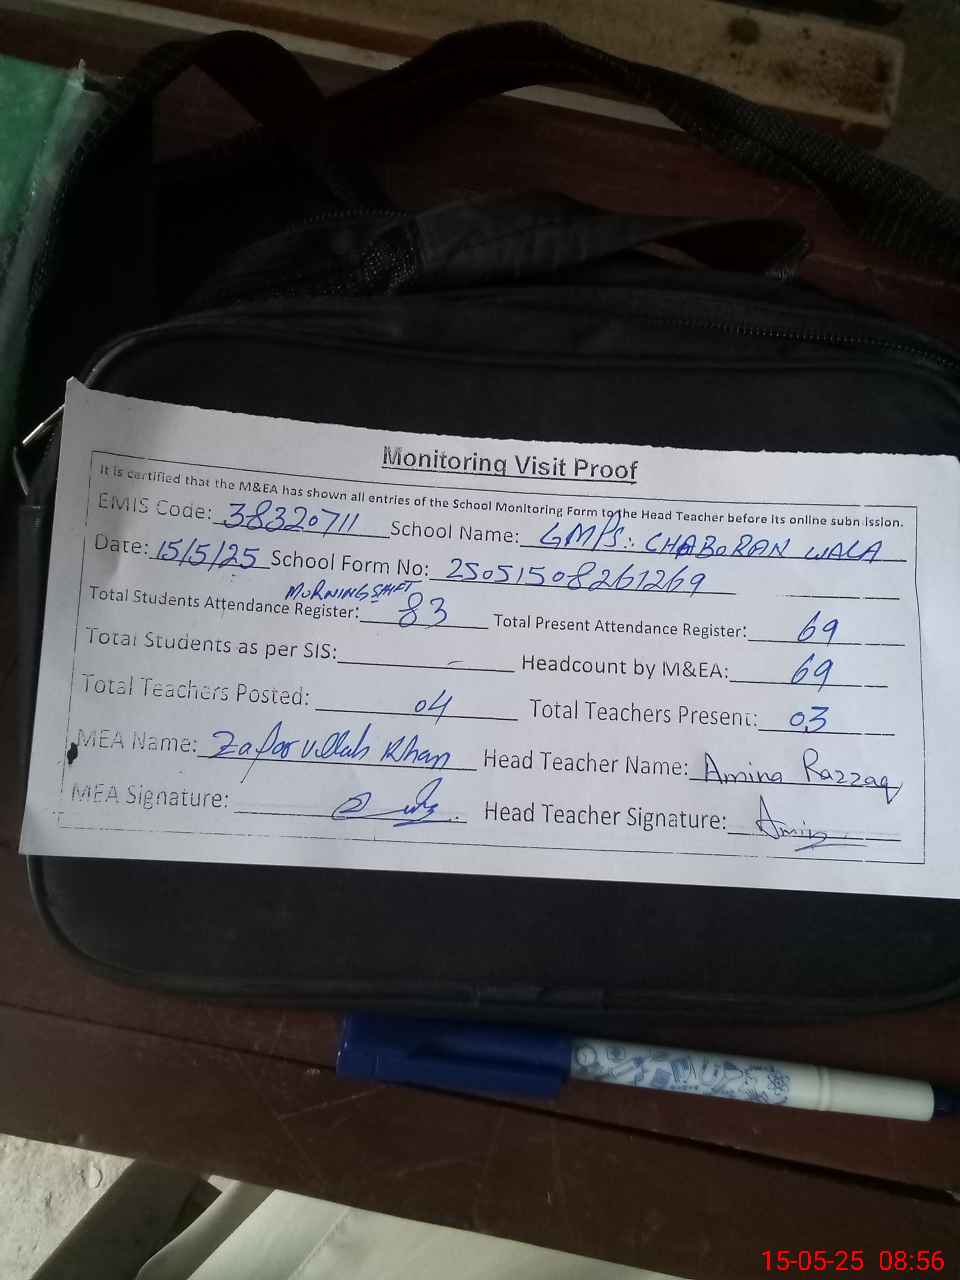 Monitoring Visit Proof
It is certified that the M&EA has shown all entries of the School Monitoring Form to the Head Teacher before its online subn ission.
EMIS Code: 38320711 School Name: GMPS: CHABORAN WALA
Date: 15/5/25 School Form No: 25051508261269
MORNING SHIFT
Total Students Attendance Register: 83 Total Present Attendance Register: 69
Total Students as per SIS: - Headcount by M&EA: 69
Total Teachers Posted: 04 Total Teachers Present: 03
MEA Name: Zafar ullah Khan Head Teacher Name: Amina Razzaq
MEA Signature: Head Teacher Signature: Amin
15-05-25 08:56